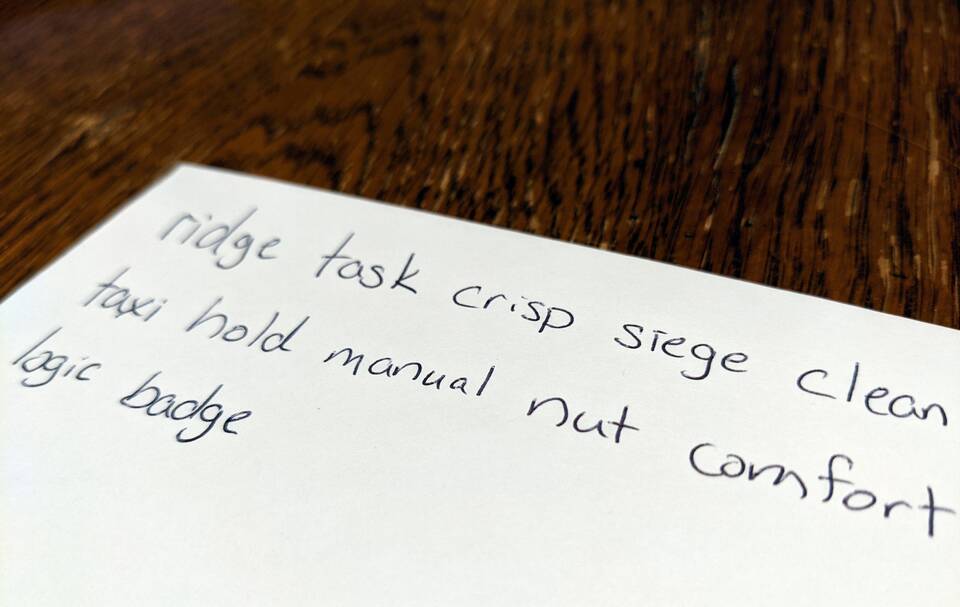 ridge task crisp siege clean
taxi hold manual nut comfort
logic badge